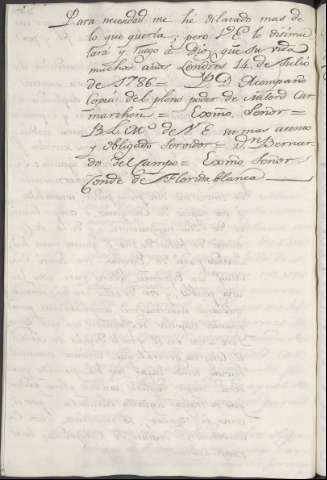 Para necesidad me he dilatado mas de
lo que queria; pero V.E. lo disimu
lará y ruego á Dios que su vida
muchos años Londres 14 de Julio
de 1786 = P.D. Acompaño
Copia del pleno poder de Milord Car
marthen = Exᵐᵒ. Señor =
B.L.Mᵒ. de V.E. su mas atento
y obligado Servidor = Dⁿ. Bernar
do del Campo = Exᵐᵒ Señor
Conde de Florida blanca